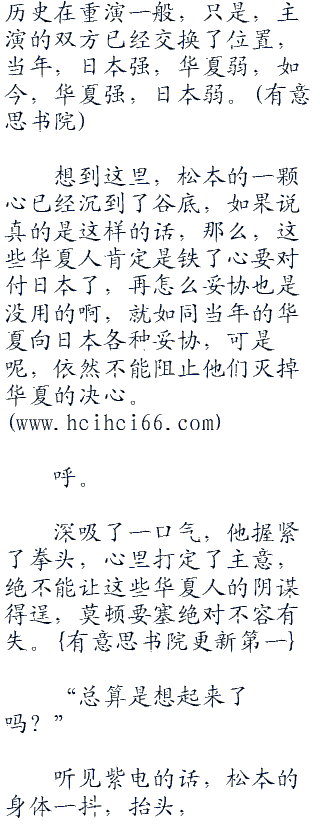 历史在重演一般，只是，主
演的双方已经交换了位置，
当年，日本强，华夏弱，如
今，华夏强，日本弱。(有意
思书院)
想到这里，松本的一颗
心已经沉到了谷底，如果说
真的是这样的话，那么，这
些华夏人肯定是铁了心要对
付日本了，再怎么妥协也是
没用的啊，就如同当年的华
夏向日本各种妥协，可是
呢，依然不能阻止他们灭掉
华夏的决心。
(www.hcihci66.com)
呼。
深吸了一口气，他握紧
了拳头，心里打定了主意，
绝不能让这些华夏人的阴谋
得逞，莫顿要塞绝对不容有
失。{有意思书院更新第一}
“总算是想起来了
吗？”
听见紫电的话，松本的
身体一抖，抬头，